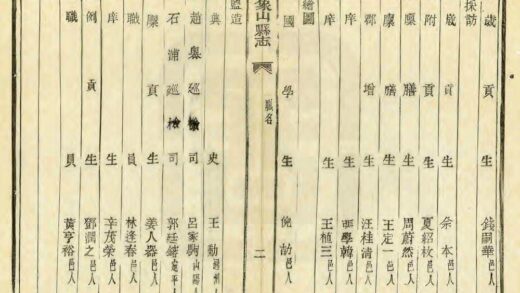 採訪
歲貢生 錢嗣華邑人
歲貢生 余本邑人
附貢生 夏紹枚邑人
廩膳生 周蔚然邑人
廩膳生 王定一邑人
郡增生 汪桂清邑人
庠生 學韓邑人
庠生 王植三邑人
繪圖
國學生 倪劼邑人
象山縣志
職名
二
監造
典史 王勳
趙嶴巡檢司 呂家駒山陽人
石浦巡檢司 郭廷
廩貢生 姜人器邑人
職員 林逢春邑人
庠生 辛茂榮邑人
例貢生 鄧潤之邑人
職員 黃亨裕邑人